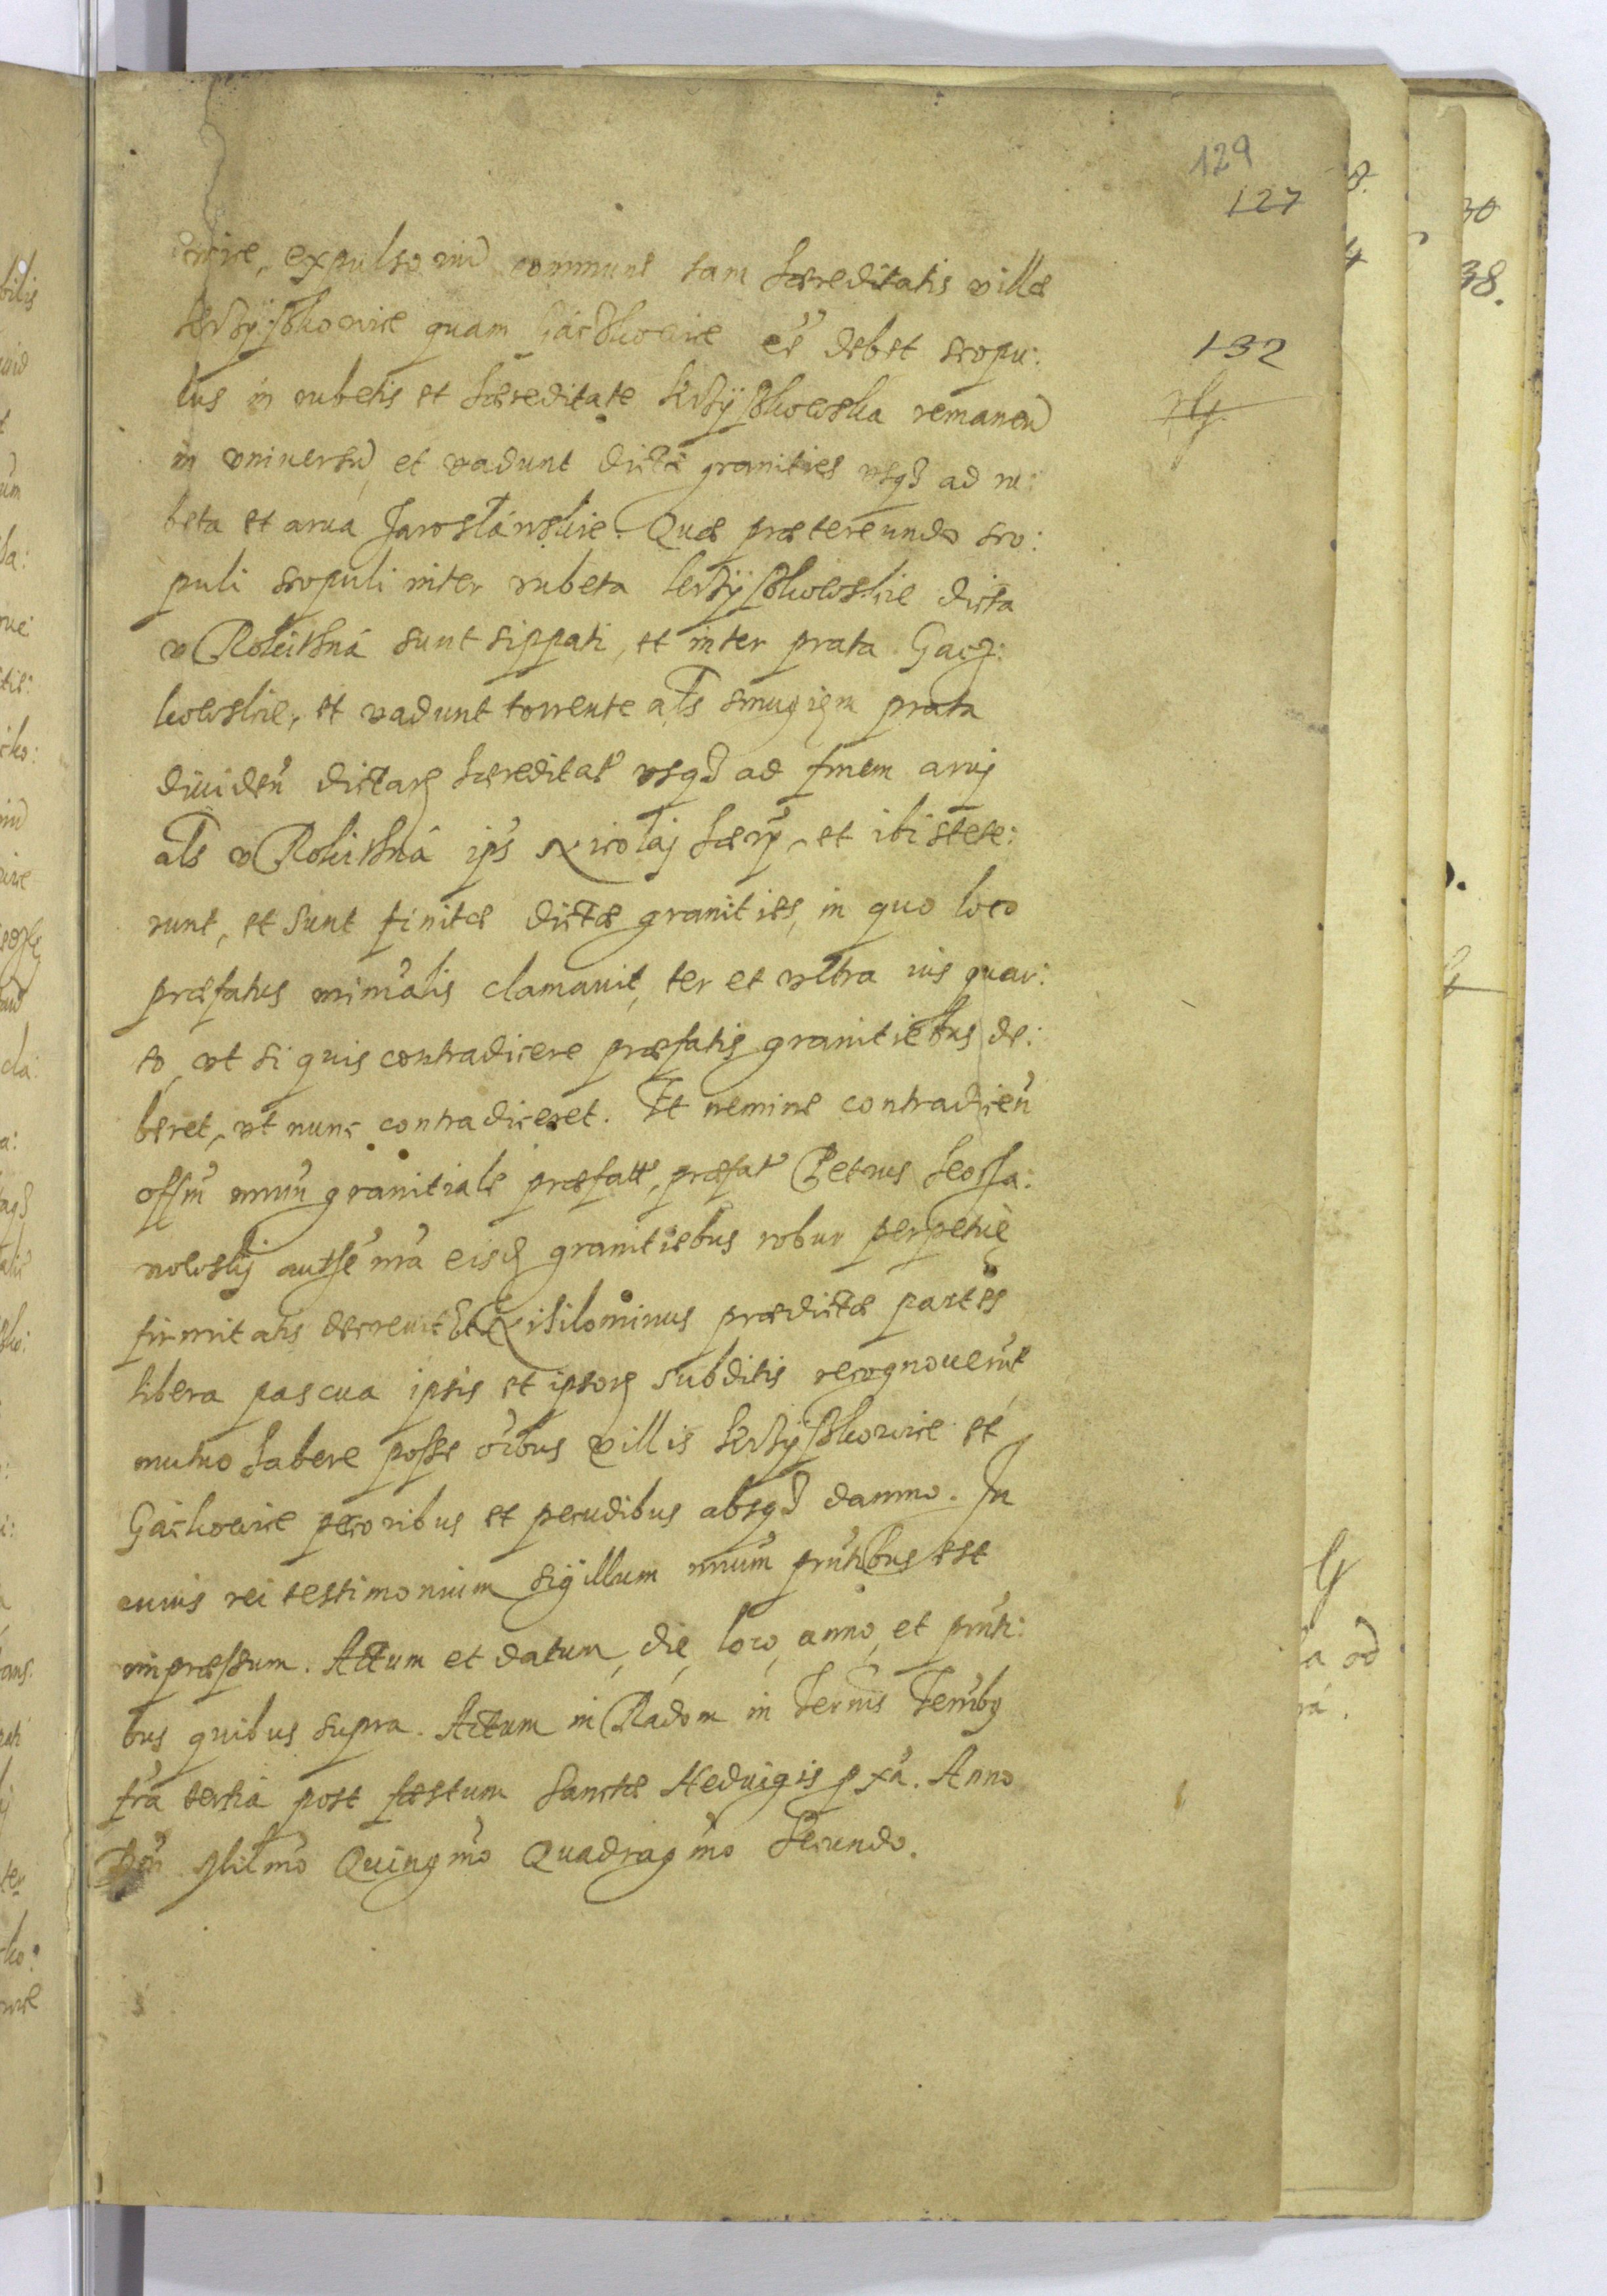 129
127
132
expulso communs tam hæreditatis villæ
Krzyszkowice quam Gaczkowice eē debet scopu:
lus in rubetis et hæreditate Krzyszkowska remanen
in vniuersū, et vadunt dictæ granities vsqȝ ad ru:
beta et arua Jarosláwskie. Quæ prætereundo sco:
puli scopuli inter rubeta krzyszkowskie dicta
v Rokithná sunt sippati, et inter prata Gacz:
kowskie, et vadunt torrente als smugiem prata
diuiden dictarȝ hæreditat vsqȝ ad finem arvj
als v Rokithná ips Nicolaj hæn, et ibi stete:
runt, et sunt finitæ dictæ granities, in quo loco
præfatus minialis clamauit, ter et vltra ius quar:
to, vt si quis contradicere præfatis granitiebus de:
beret, vt nunc contradiceret. Et nemine contradicen
offm nrum granitiale præfatt, præfat Petrus
authē nrā eisdȝ granitiebus robur perpetuę
firmitatis decreuit Et Nihilominus prædictæ partes
libera pascua ipsis et ipsorȝ subditis recognouerunt
mutuo habere posse oībus villis Krzyszkowice et
Gackowice pecoribus et pecudibus absqȝ damno. In
cuius rei testimonium sigillum nrum pntibus est
impræssum. Actum et datum, die, loco, anno, et pnti:
bus quibus supra. Actum in Radom in Ternis Terribȝ
fra tertia post fæstum Sanctæ Heduigis pxa. Anno
Dni Millmo Quingmo Quadragmo Secundo.